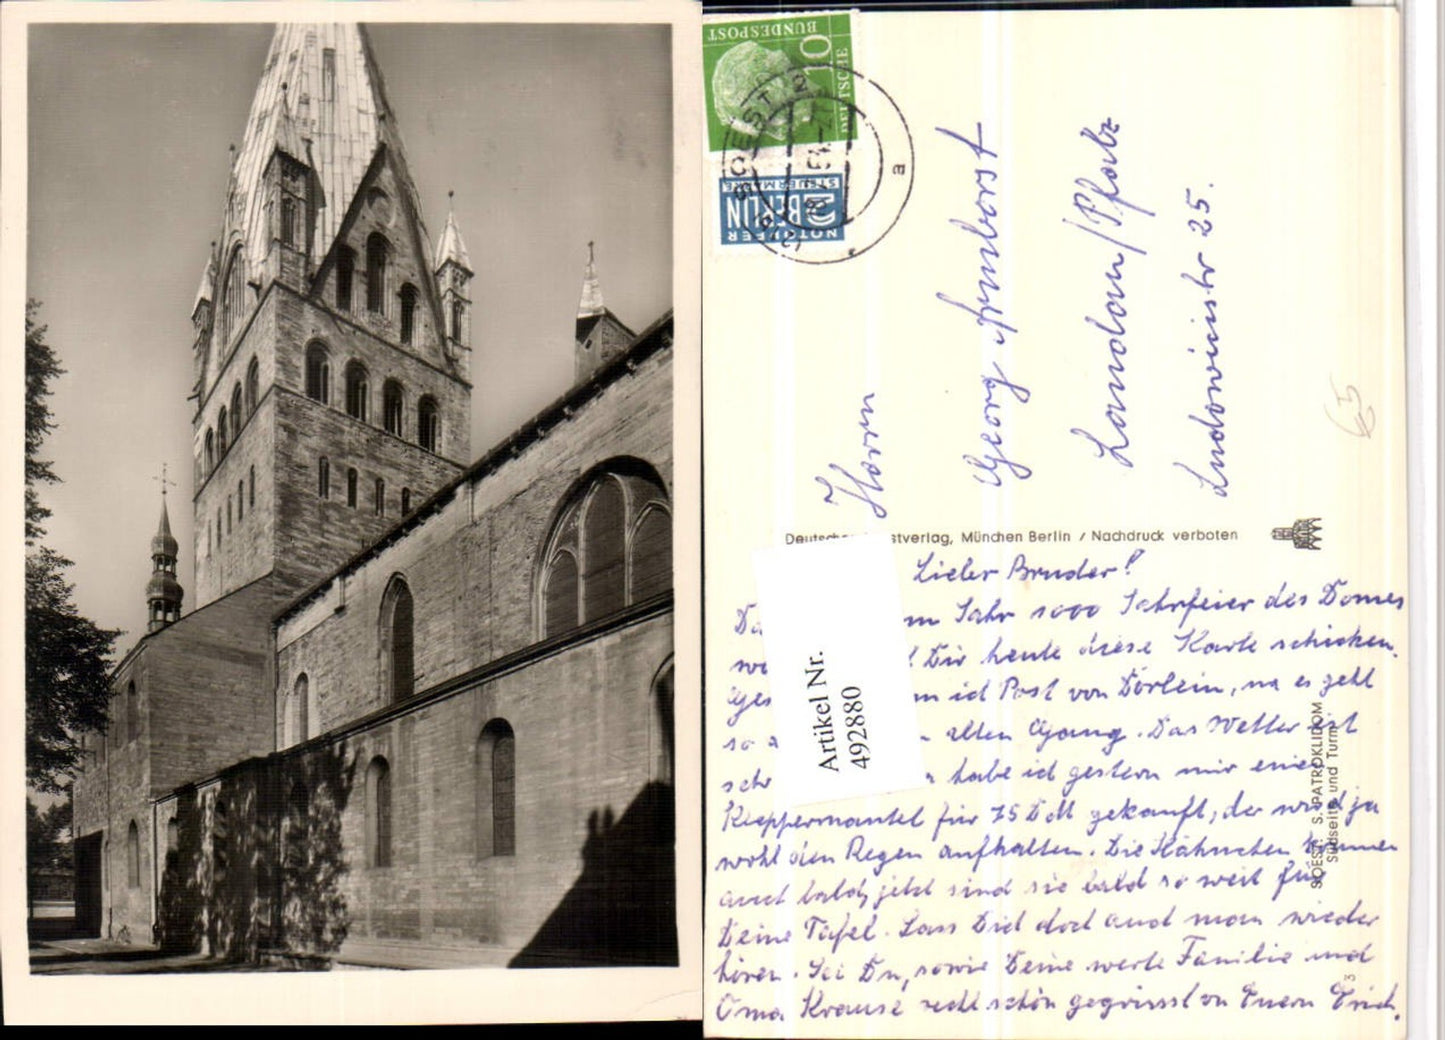 DEUTSCHE
BUNDESPOST
10
SOEST 2
a
NOTOPFER
2 BERLIN
STEUERMARKE
Herrn
Georg Armborst
Landau/Pfalz
Ludowicistr 25.
Deutscher stverlag, München Berlin / Nachdruck verboten
Lieber Bruder!
Da m Jahr 1000 Jahrfeier des Domes
Dir heute diese Karte schicken.
Ges Post von Dörlein, na es geht
so a alten Gang. Das Wetter ist
sehr habe ich gestern mir einen
Kleppermantel für 75 DM gekauft, der wird ja
wohl den Regen aufhalten. Die Hähnchen kommen
auch bald, jetzt sind sie bald so weit für
Deine Tafel. Lass Dich doch auch man wieder
hören. Sei Du, sowie Deine werte Familie und
Oma Krause recht schön gegrüsst von Euern Erich.
Artikel Nr.
492880
SOEST. ST. PATROKLIDOM
Südseite und Turm
3